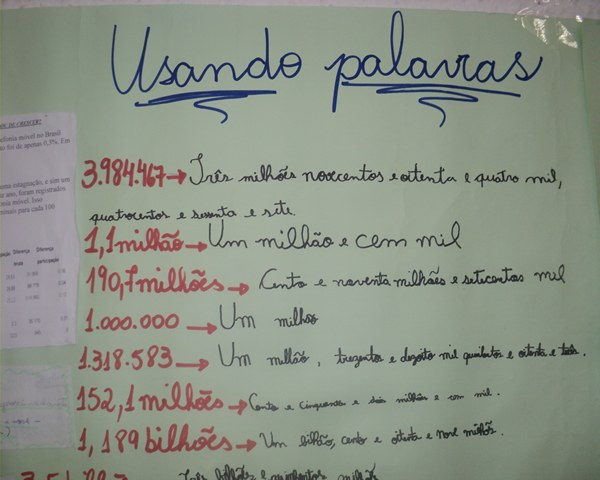 Usando palavras
3.984.467 → Três milhões novecentos e oitenta e quatro mil,
quatrocentos e sessenta e sete
1,1 milhão → Um milhão e cem mil
190,7 milhões → Cento e noventa milhões e setecentos mil
1.000.000 → Um milhão
1.318.583 → Um milhão, trezentos e dezoito mil quinhentos e oitenta e três.
152,1 milhões → Cento e cinquenta e dois milhões e cem mil.
1,189 bilhões → Um bilhão, cento e oitenta e nove milhões.
CRESCER?
telefonia móvel no Brasil
foi de apenas 0,3%. Em
estagnação, e sim um
ano, foram registrados
móvel. Isso
para cada 100